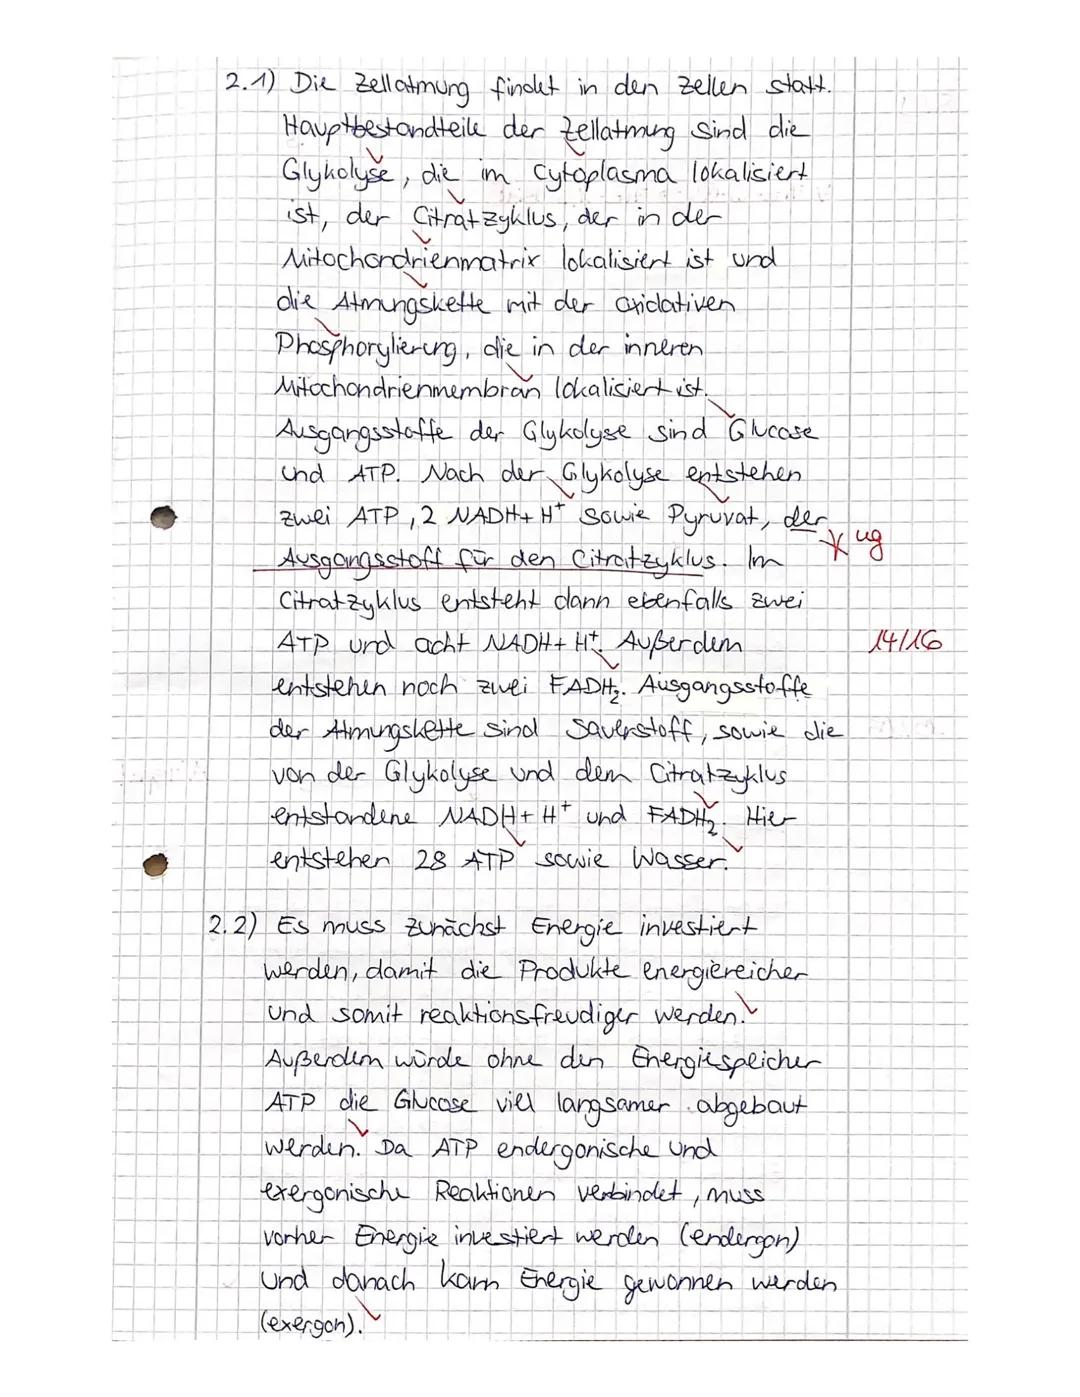 2.1) Die Zellatmung findet in den Zellen statt.
Hauptbestandteile der Zellatmung sind die
Glykolyse, die im Cytoplasma lokalisiert
ist, der Citratzyklus, der in der
Mitochondrienmatrix lokalisiert ist und
die Atmungskette mit der oxidativen
Phosphorylierung, die in der inneren
Mitochondrienmembran lokalisiert ist.
Ausgangsstoffe der Glykolyse sind Glucose
und ATP. Nach der Glykolyse entstehen
zwei ATP, 2 NADH+H⁺ sowie Pyruvat, der
ug
Ausgangsstoff für den Citratzyklus. Im
Citratzyklus entsteht dann ebenfalls zwei
ATP und acht NADH+H⁺. Außerdem
14/16
entstehen noch zwei FADH₂. Ausgangsstoffe
der Atmungskette sind Sauerstoff, sowie die
von der Glykolyse und dem Citratzyklus
entstandene NADH+H⁺ und FADH₂. Hier
entstehen 28 ATP sowie Wasser.
2.2) Es muss zunächst Energie investiert
werden, damit die Produkte energiereicher
und somit reaktionsfreudiger werden.
Außerdem würde ohne den Energiespeicher
ATP die Glucose viel langsamer abgebaut
werden. Da ATP endergonische und
exergonische Reaktionen verbindet, muss
vorher Energie investiert werden (endergon)
und danach kann Energie gewonnen werden
(exergon).